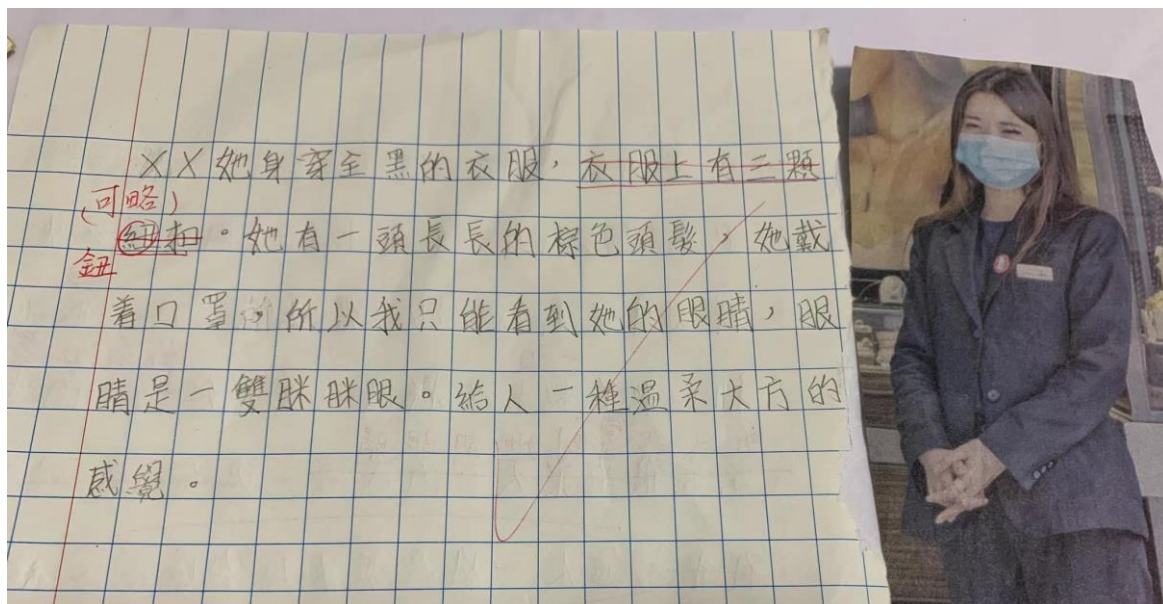 XX她身穿全黑的衣服，衣服上有三顆
(可略)
紐扣。她有一頭長長的棕色頭髮，她戴
鈕
着口罩，所以我只能看到她的眼睛，眼
睛是一雙眯眯眼。給人一種溫柔大方的
感覺。